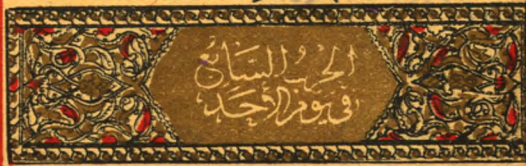 الحزب السابع
في يوم الأحد